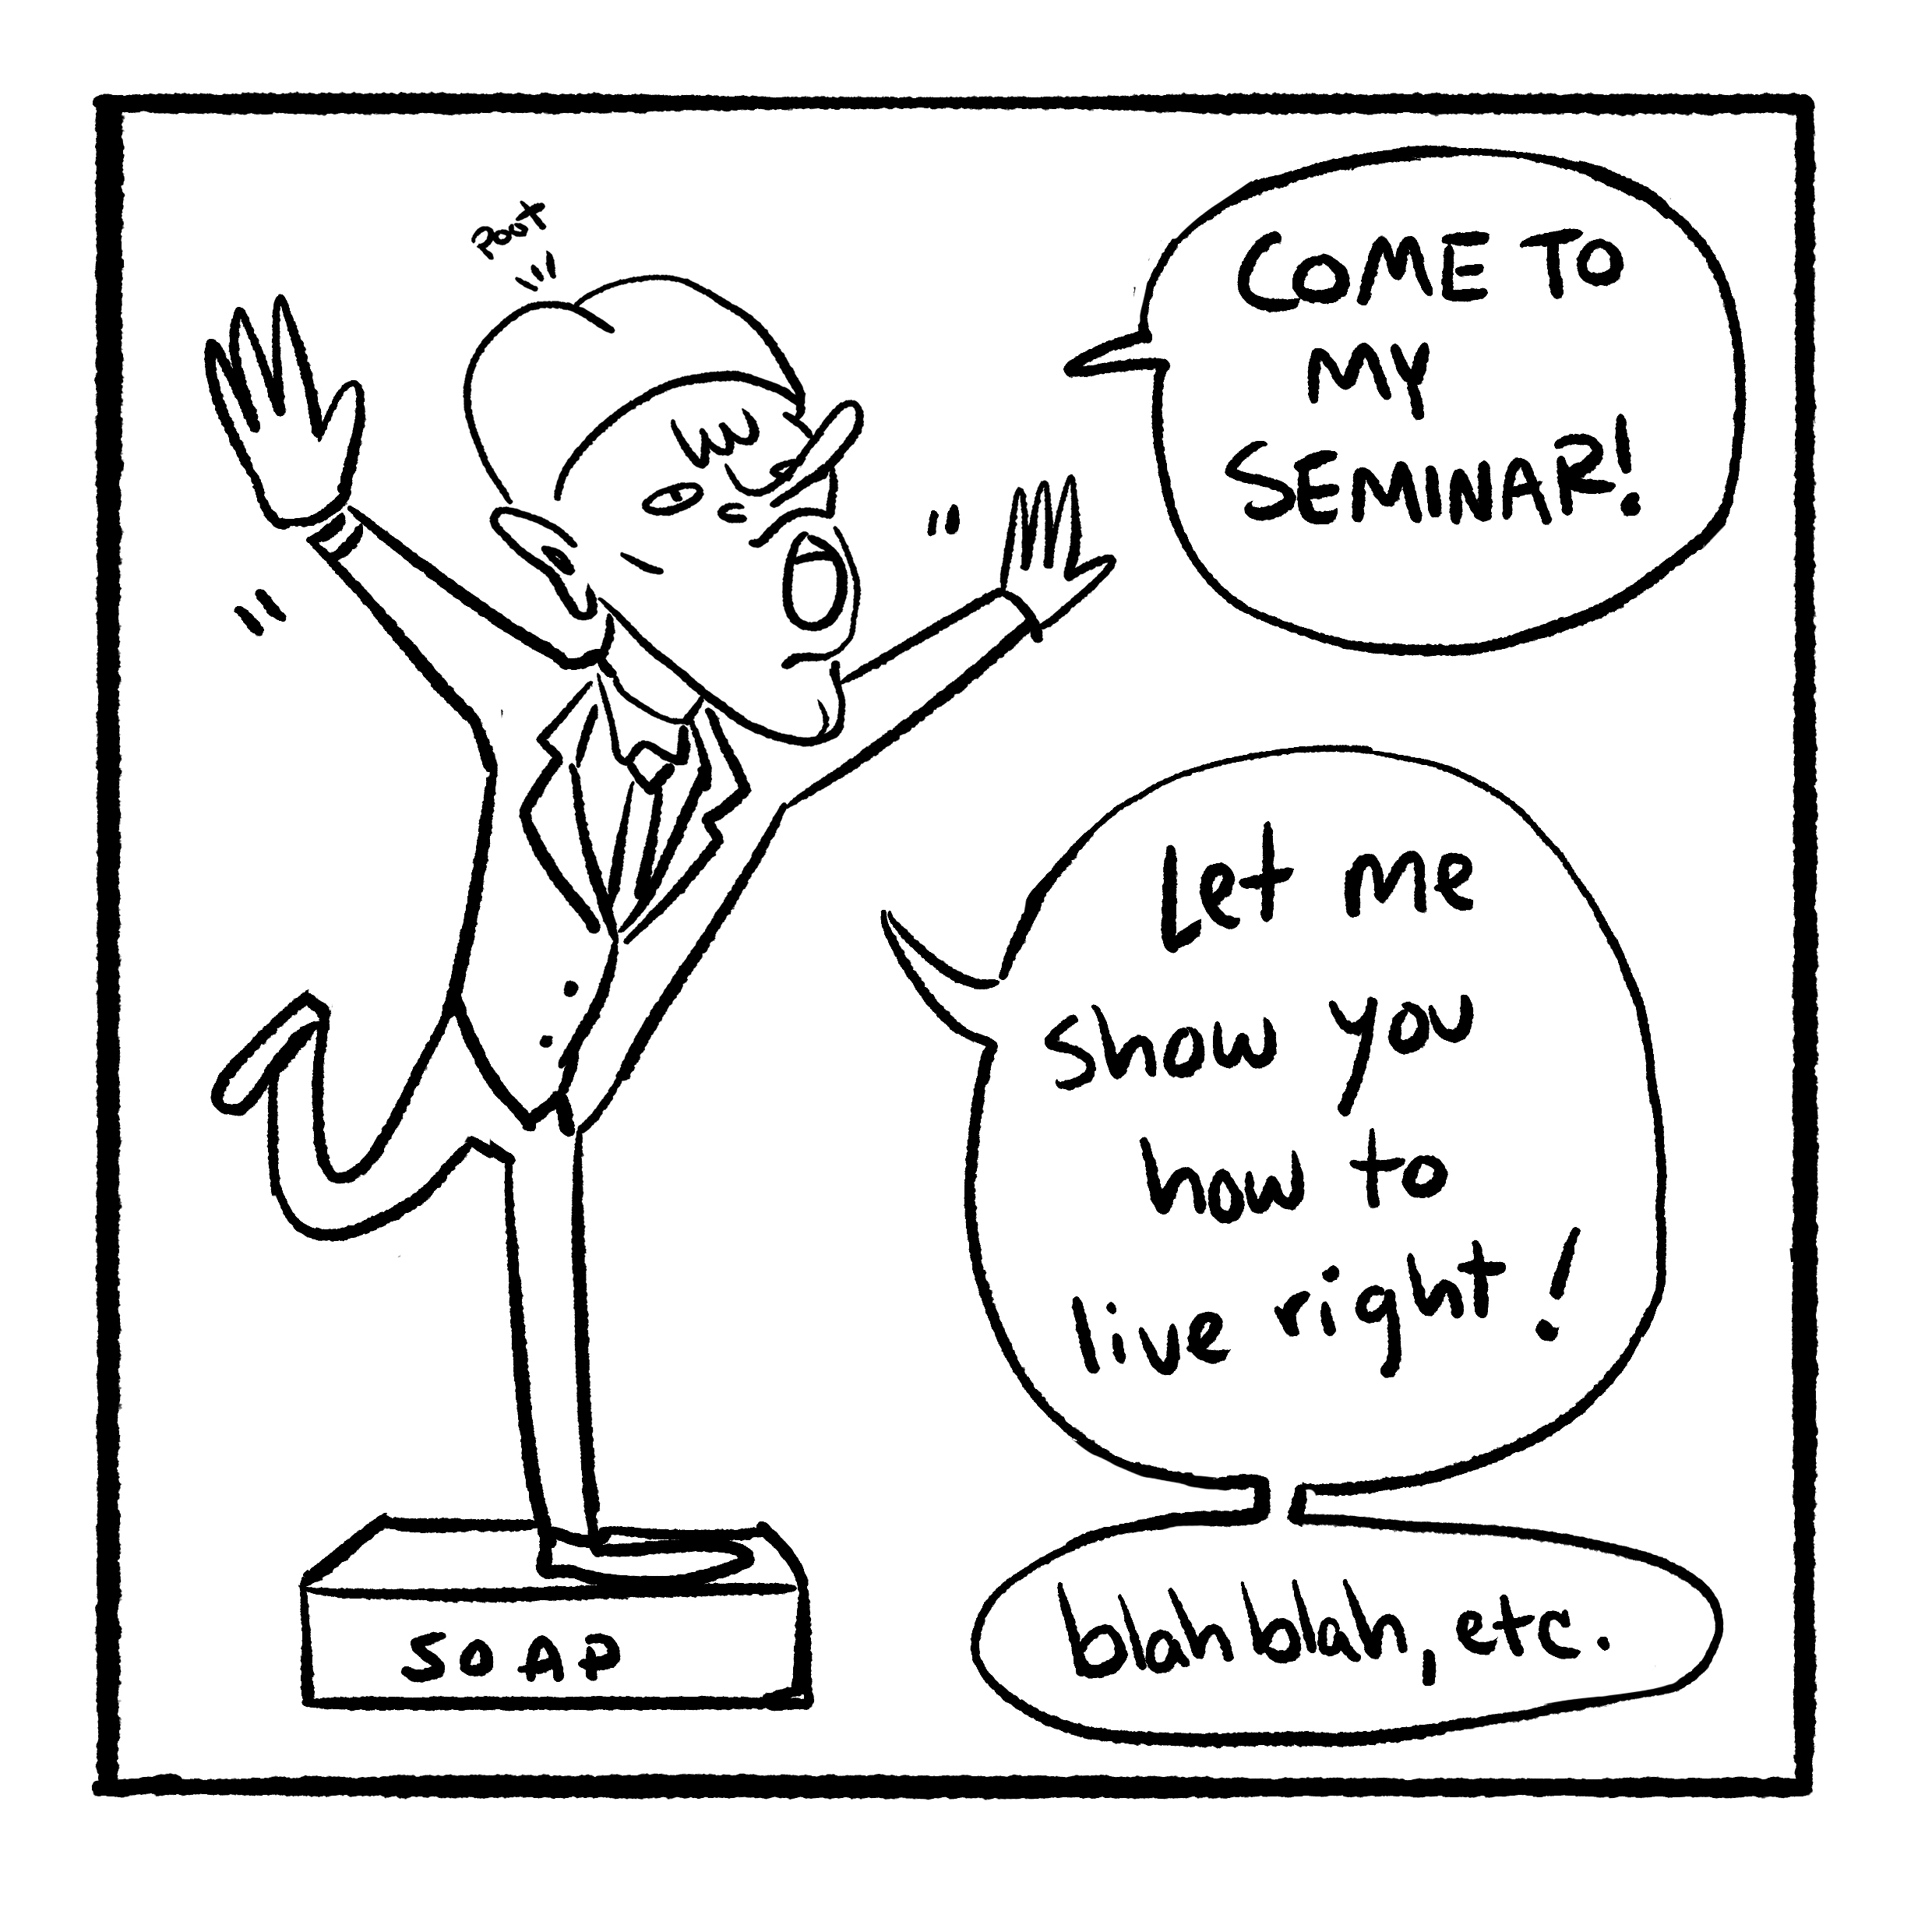 poot
COME TO
MY
SEMINAR!
Let me
show you
how to
live right!
blah blah, etc.
SOAP